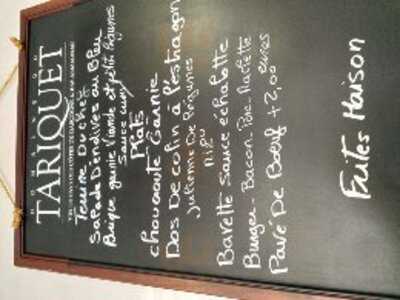 DOMAINE DU
TARIQUET
Terrine Du chef
Salade D'endives au Bleu
Burger garnie Viande et petits légumes
sauce curry
Plats
choucroute Garnie
Dos De colin à l'estragon
Julienne De légumes
Riz
Bavette Sauce échalotte
Burger - Bacon - Poire - Raclette
Pavé De Bœuf +2,00 euros
Frites Maison